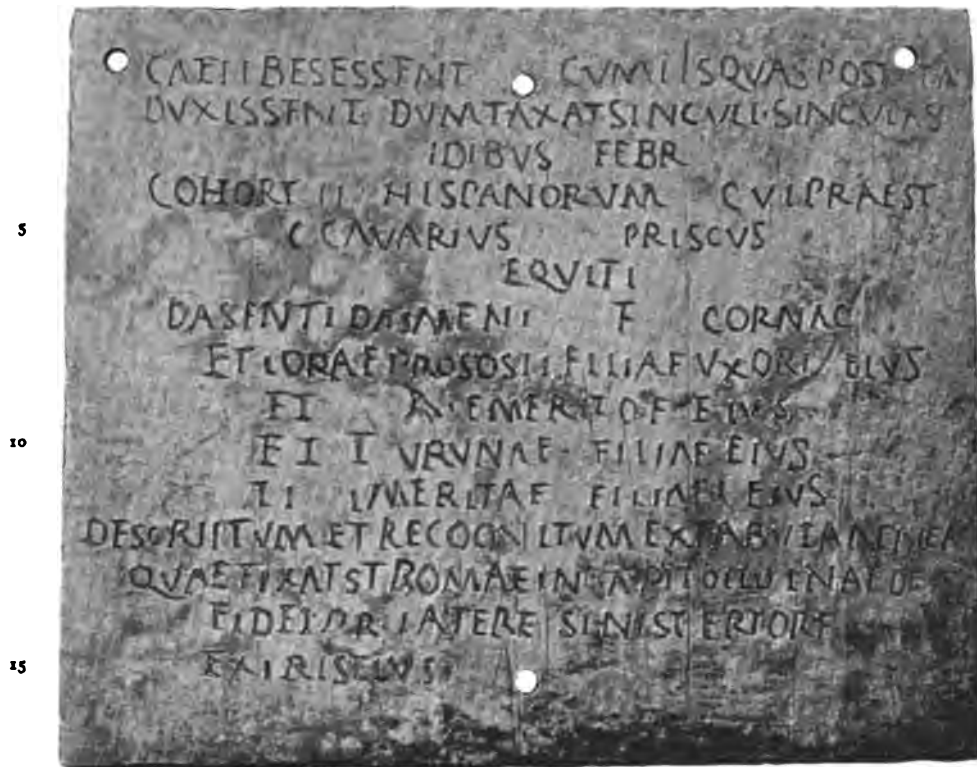 CAELIBES ESSENT CUM IIS QUAS POSTEA
DUXISSENT DUMTAXAT SINGULI·SINGULAS
IDIBUS FEBR
COHORT II HISPANORVM CVI PRAEST
5 C CAVARIVS PRISCVS
EQVITI
DASENTI DASMENI F CORNAC
ET IORAE PROSOSII FILIAE VXORI EIVS
ET EMERITO F EIVS
10 ET TVRVNAE FILIAE EIVS
ET EMERITAE FILIAE EIVS
DESCRIPTVM ET RECOGNITVM EX TABVLA AENEA
QVAE FIXA EST ROMAE IN CAPITOLIO IN AEDE
FIDEI P R LATERE SINISTERIORE
15 EXTRINSECVS